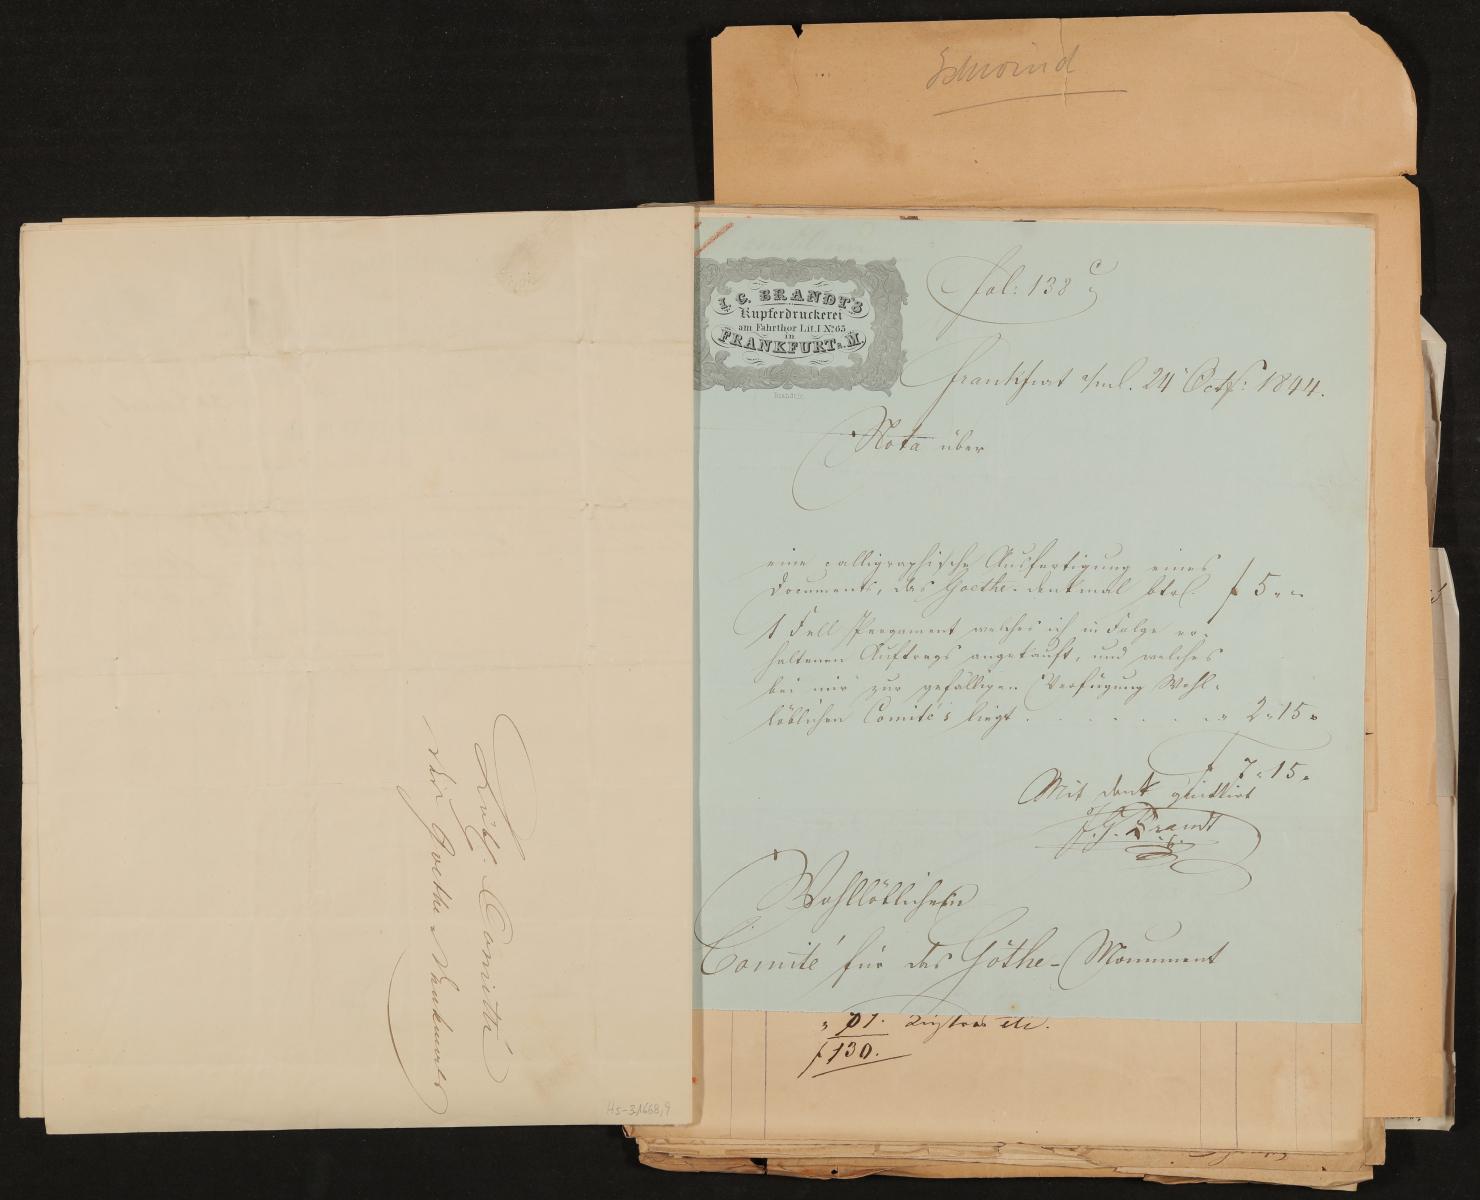 Schwind
I. G. BRANDT'S
Kupferdruckerei
am Fahrthor Lit. I No. 65
in
FRANKFURT a. M.
Brandt fc.
fol: 138 c
Frankfurt a/M. 24 Octbr: 1844.
Nota über
eine calligraphische Ausfertigung eines
Documents, das Goethe-denkmal btrf. f 5 " "
1 Fell Pergament welches ich in Folge er-
haltenen Auftrags angekauft, und welches
bei mir zur gefälligen Verfügung Wohl-
löblichen Comité's liegt . . . . . . . " 2 " 15 "
f 7 " 15 "
Mit dank quittirt
J. G. Brandt
Wohllöblichen
Comité für das Göthe-Monument
" 91.
f 130.
Löbl. Comitté
des Goethe Denkmals
Hs-31668,9